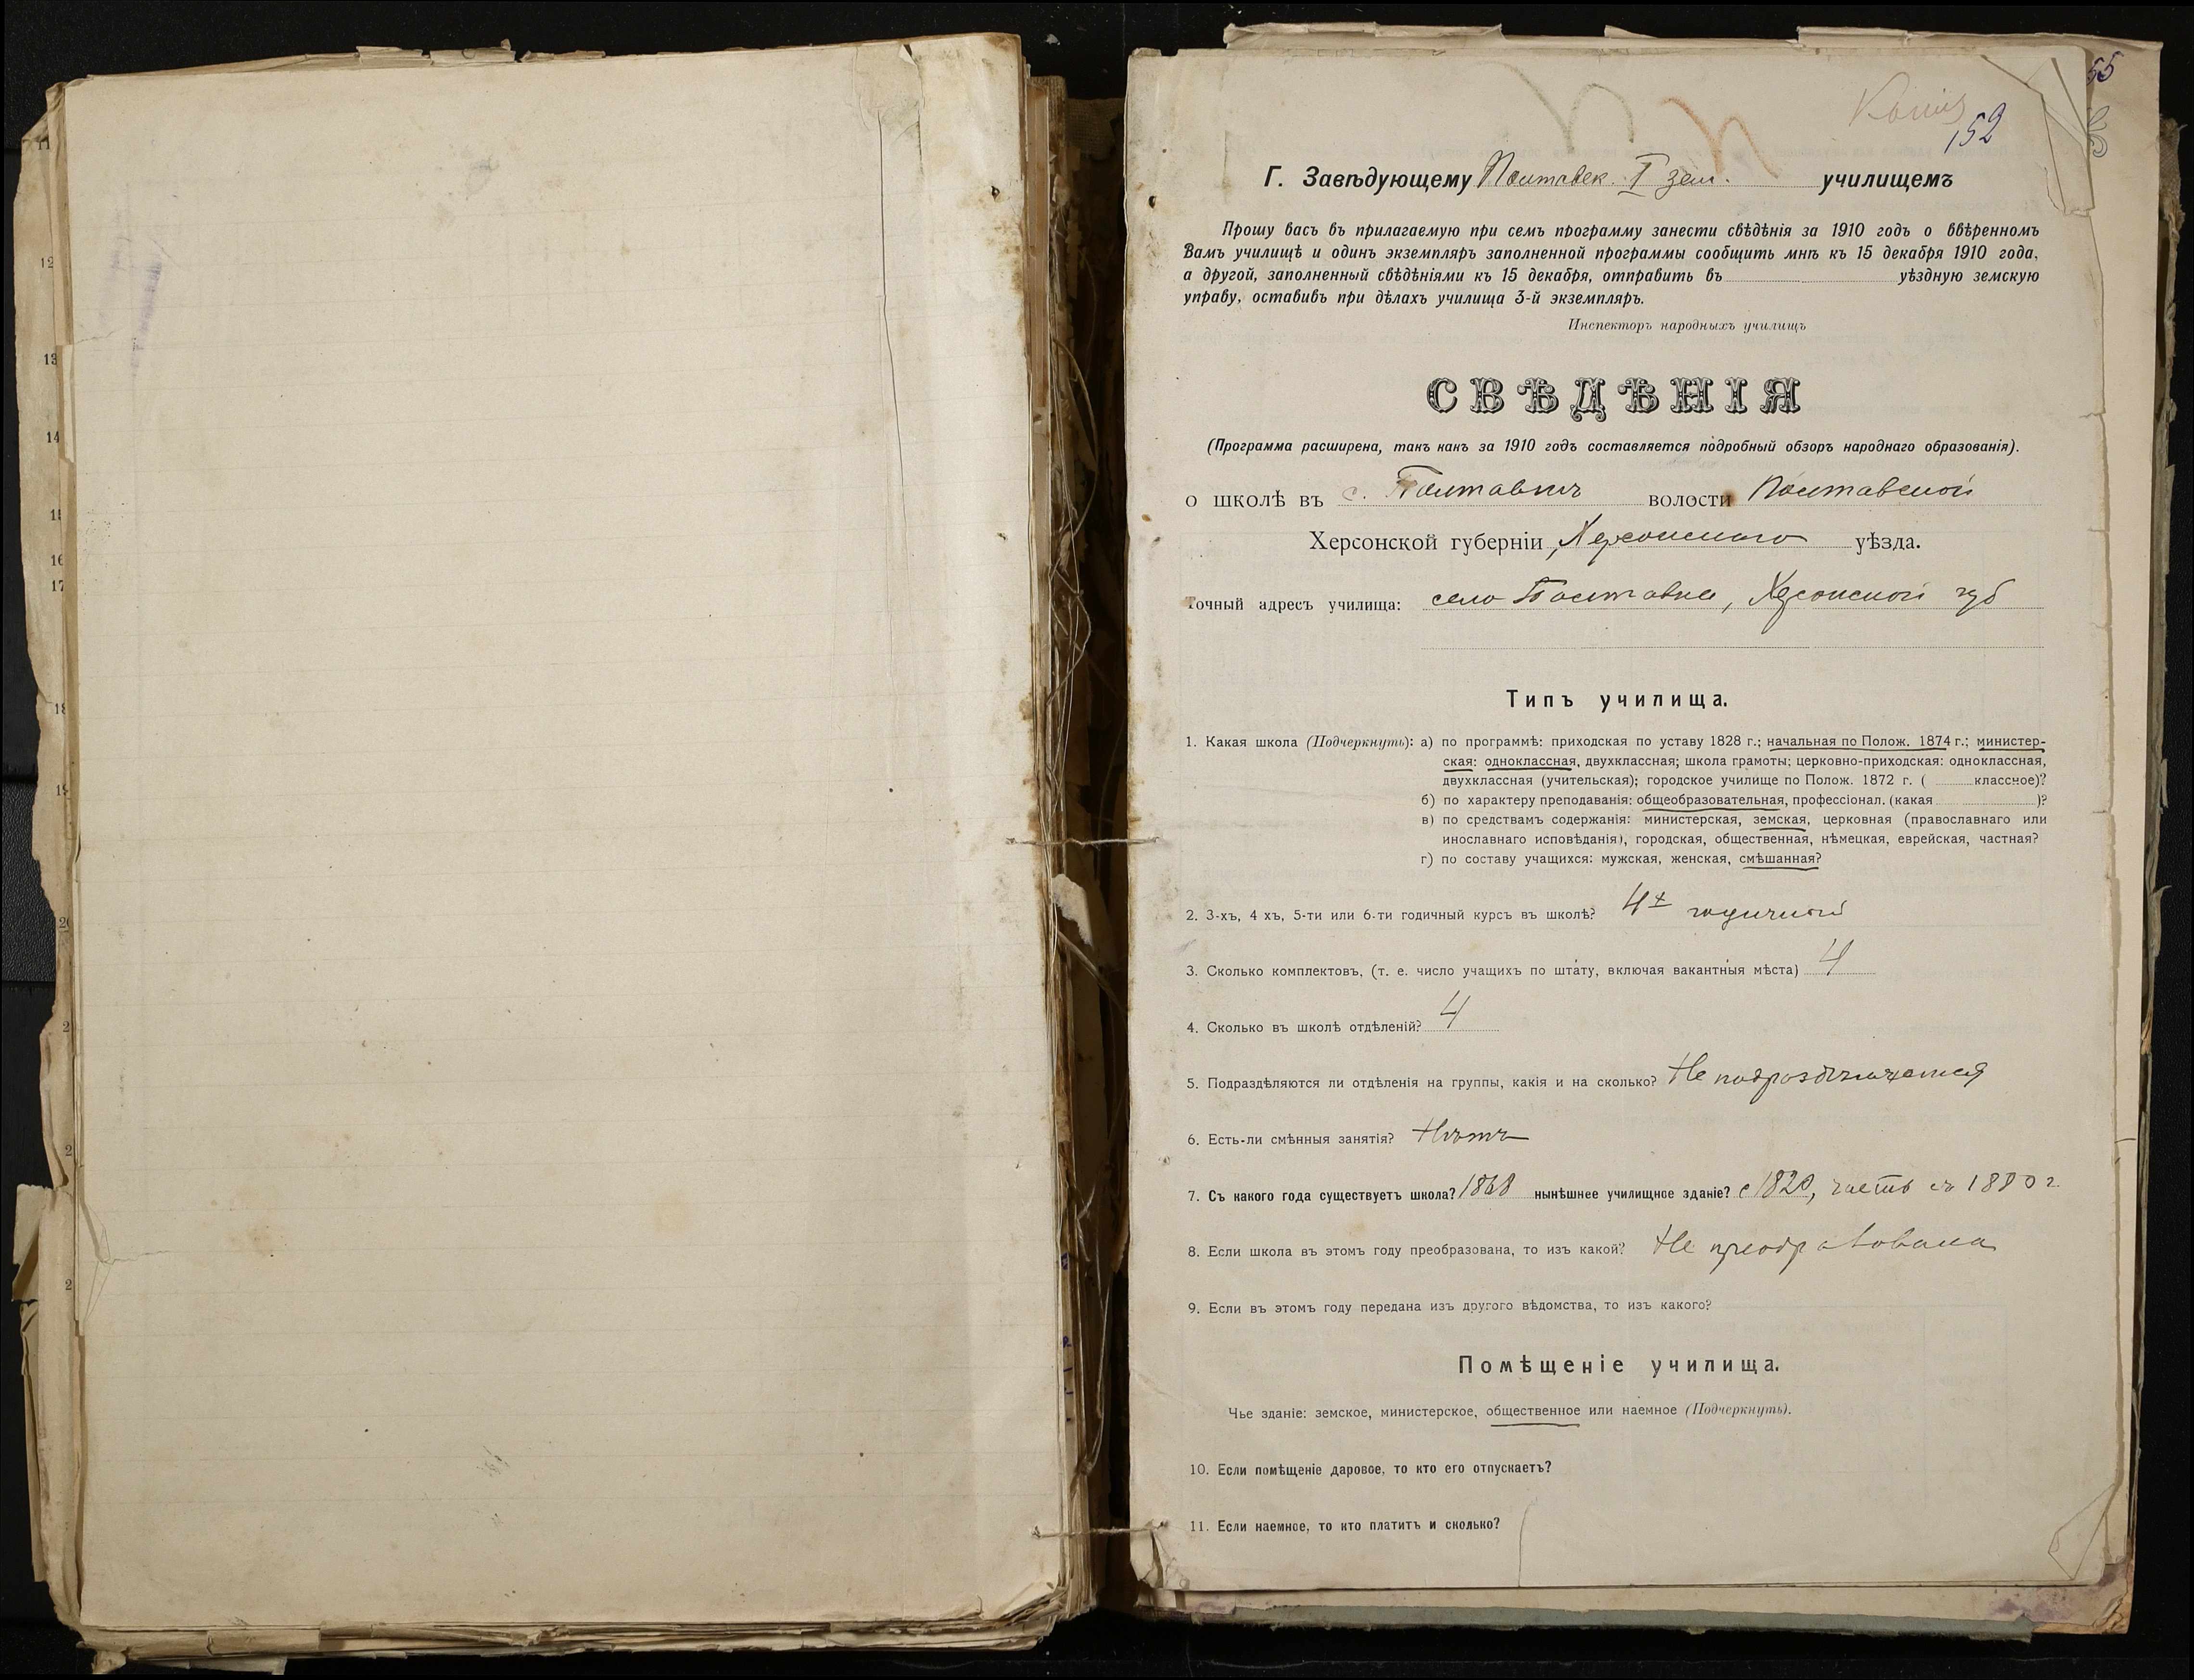 11
12
13
14
15
16
17
18
19
20
2
2
2
55
Копія
152
Г. Завѣдующему Полтавск. I зем. училищемъ
Прошу васъ въ прилагаемую при семъ программу занести свѣдѣнія за 1910 годъ о ввѣренномъ
Вамъ училищѣ и одинъ экземпляръ заполненной программы сообщить мнѣ къ 15 декабря 1910 года,
а другой, заполненный свѣдѣніями къ 15 декабря, отправить въ уѣздную земскую
управу, оставивъ при дѣлахъ училища 3-й экземпляръ.
Инспекторъ народныхъ училищъ
СВѢДѢНІЯ
(Программа расширена, такъ какъ за 1910 годъ составляется подробный обзоръ народнаго образованія).
о школѣ въ с. Полтавкѣ волости Полтавской
Херсонской губерніи, Херсонскаго уѣзда.
Точный адресъ училища: село Полтавка, Херсонской губ
Типъ училища.
1. Какая школа (Подчеркнуть): а) по программѣ: приходская по уставу 1828 г.; начальная по Полож. 1874 г.; министер-
ская: одноклассная, двухклассная; школа грамоты; церковно-приходская: одноклассная,
двухклассная (учительская); городское училище по Полож. 1872 г. ( классное)?
б) по характеру преподаванія: общеобразовательная, профессіонал. (какая )?
в) по средствамъ содержанія: министерская, земская, церковная (православнаго или
инославнаго исповѣданія), городская, общественная, нѣмецкая, еврейская, частная?
г) по составу учащихся: мужская, женская, смѣшанная?
2. 3-хъ, 4 хъ, 5-ти или 6-ти годичный курсъ въ школѣ? 4х годичный
3. Сколько комплектовъ, (т. е. число учащихъ по штату, включая вакантныя мѣста) 4
4. Сколько въ школѣ отдѣленій? 4
5. Подраздѣляются ли отдѣленія на группы, какія и на сколько? Не подраздѣляются
6. Есть-ли смѣнныя занятія? Нѣтъ
7. Съ какого года существуетъ школа? 1868 нынѣшнее училищное зданіе? с 1820, часть съ 1880 г
8. Если школа въ этомъ году преобразована, то изъ какой? Не преобразована
9. Если въ этомъ году передана изъ другого вѣдомства, то изъ какого?
Помѣщеніе училища.
Чье зданіе: земское, министерское, общественное или наемное (Подчеркнуть).
10. Если помѣщеніе даровое, то кто его отпускаетъ?
11. Если наемное, то кто платитъ и сколько?